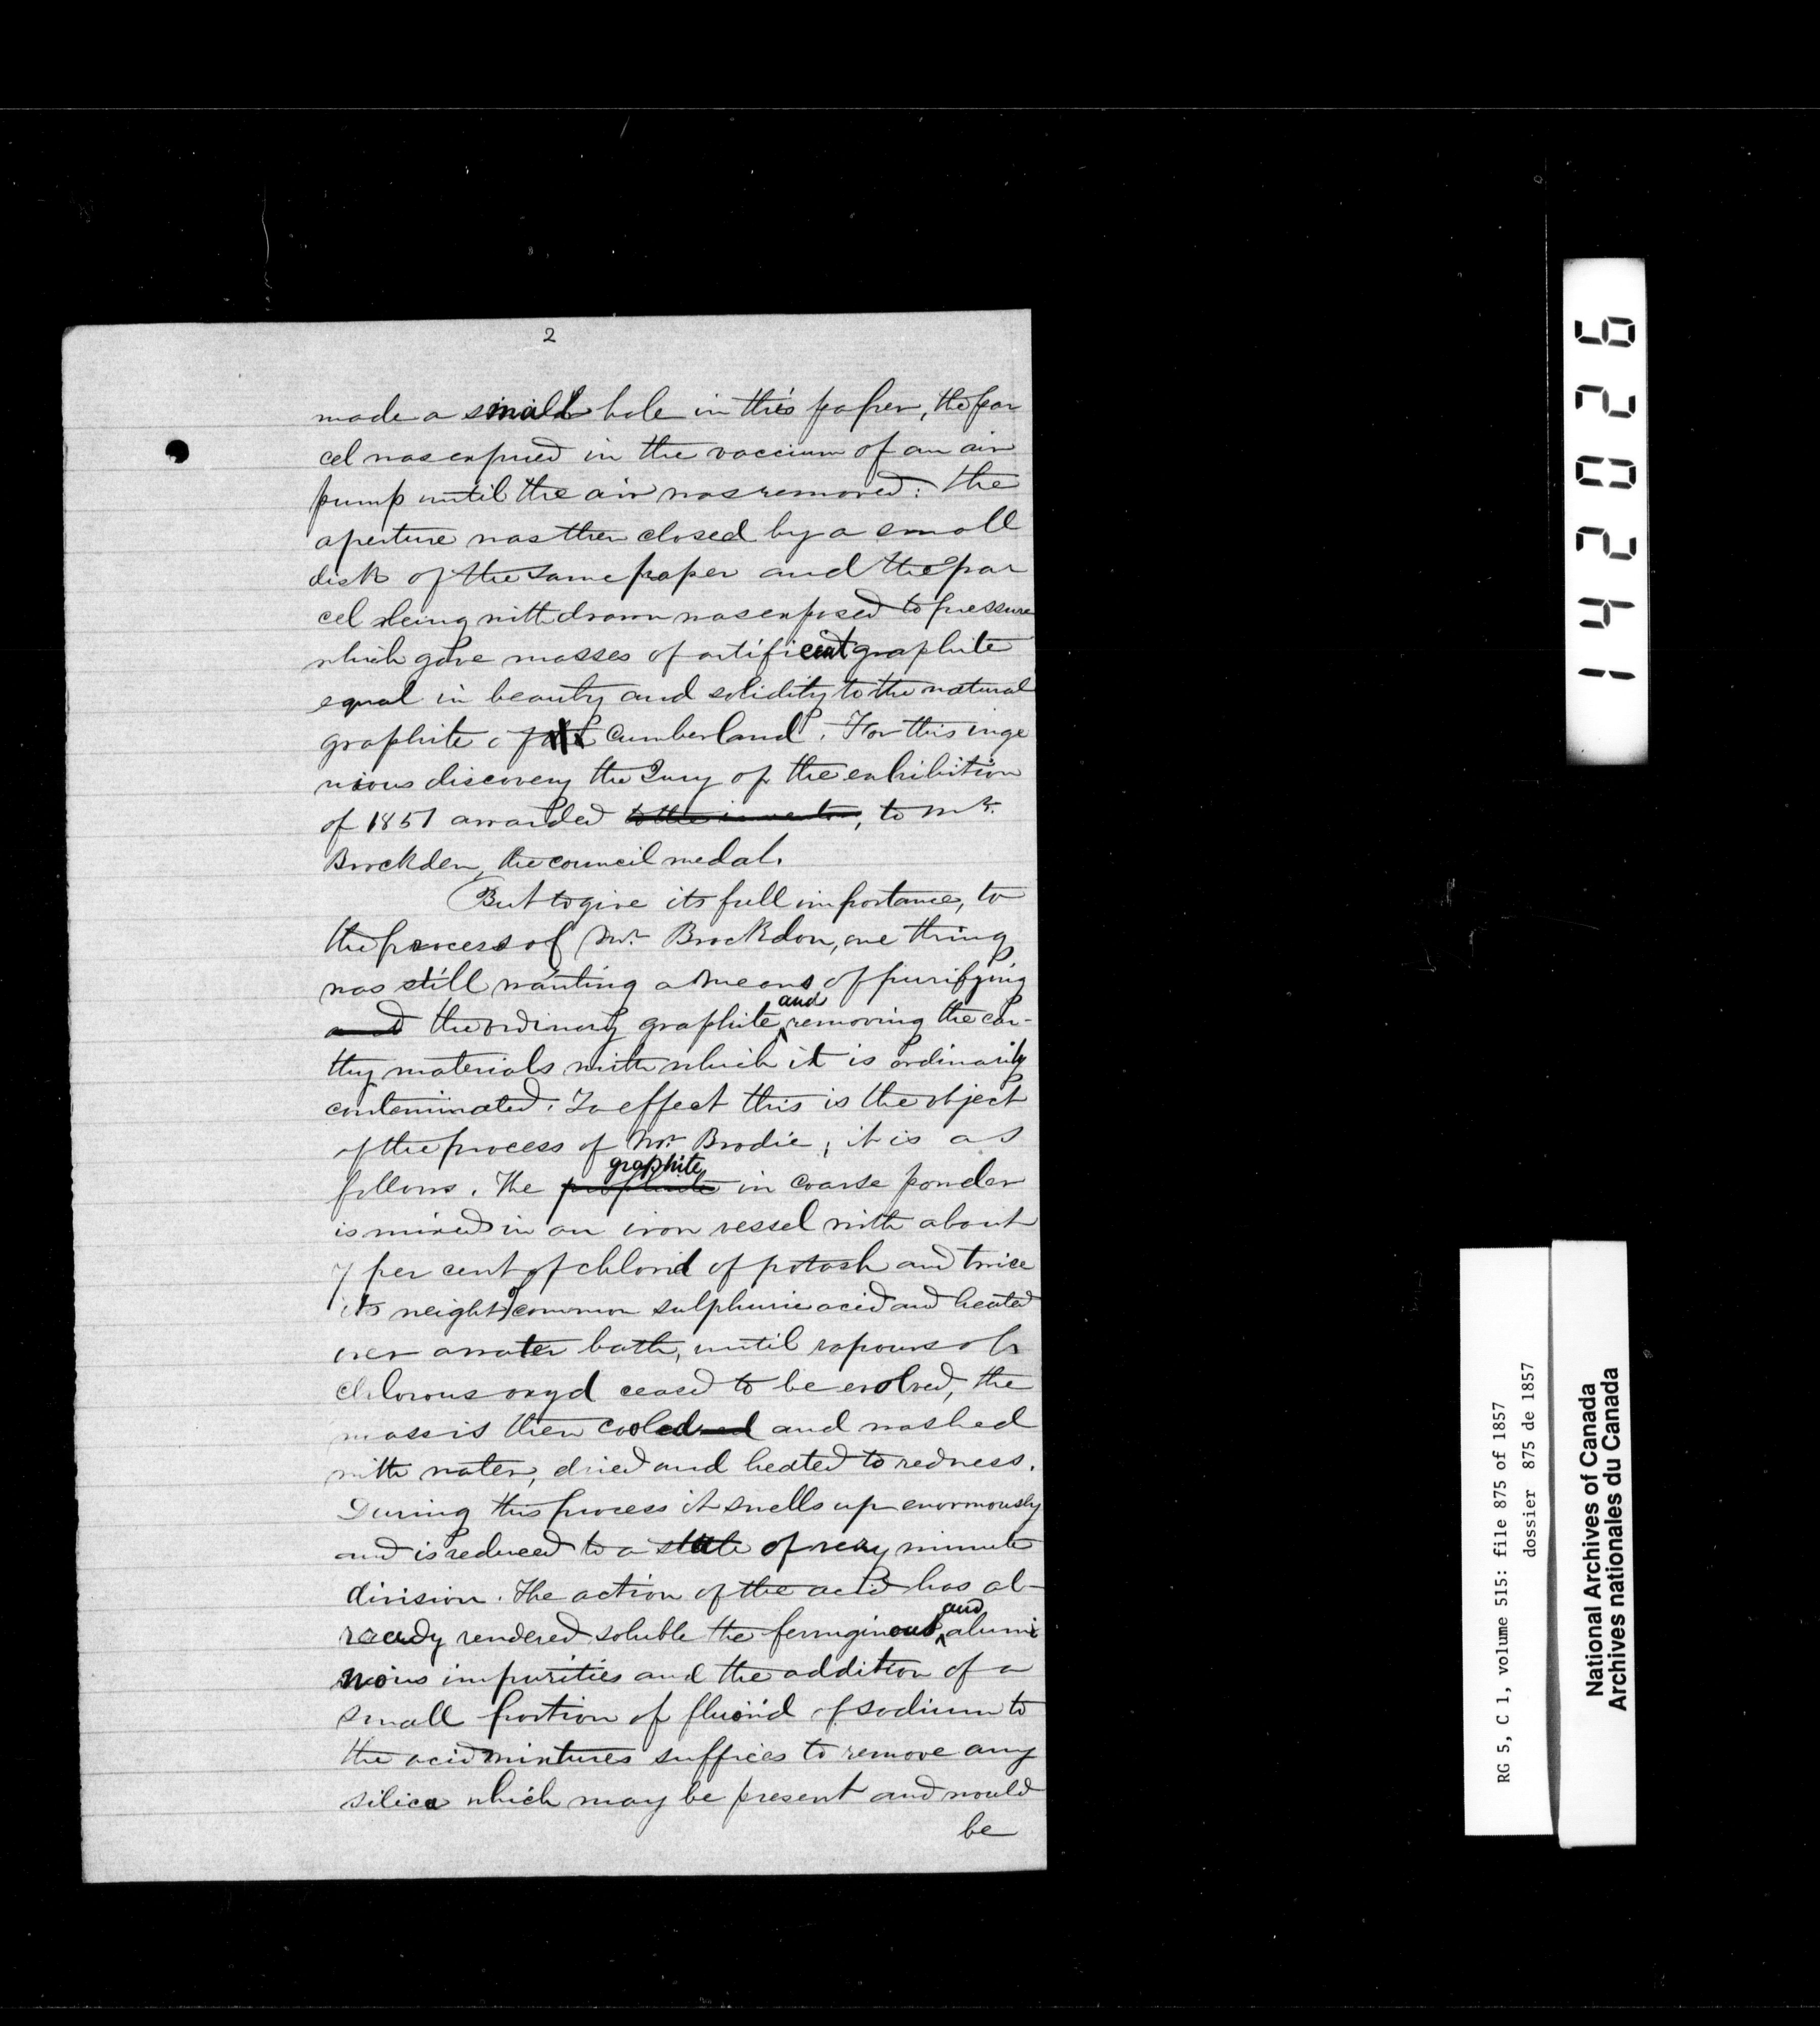 2
made a small hole in this paper, the par
cel was exposed in the vaccium of an air
pump until the air was removed: the
aperture was then closed by a small
disk of the same paper and the par
cel being withdrawn was exposed to pressure
which gave masses of artificial graphite
equal in beauty and solidity to the natural
graphite of Cumberland. For this inge
nious discovery the Jury of the exhibition
of 1851 awarded to the inventor, to Mr.
Brockden, the council medal.
But to give its full importance, to
the process of Mr. Brockdon, one thing
was still wanting a means of purifying
and the ordinary graphite and removing the ear-
thy materials with which it is ordinarily
contaminated. To effect this is the object
of the process of Mr. Brodie; it is as
follows. The graphite in coarse powder
is mixed in an iron vessel with about
7 per cent of chlorid of potash and twice
its weight of common sulphuric acid and heated
over a water bath, until vapours of
chlorous oxyd ceased to be evolved, the
mass is then cooled and washed
with water, dried and heated to redness.
During this process it swells up enormously
and is reduced to a state of very minute
division. The action of the acid has al-
ready rendered soluble the ferruginous and alumi
nous impurities and the addition of a
small portion of fluorid of sodium to
the acid mixtures suffices to remove any
silica which may be present and would
be
142026
RG 5, C 1, volume 515: file 875 of 1857
dossier 875 de 1857
National Archives of Canada
Archives nationales du Canada